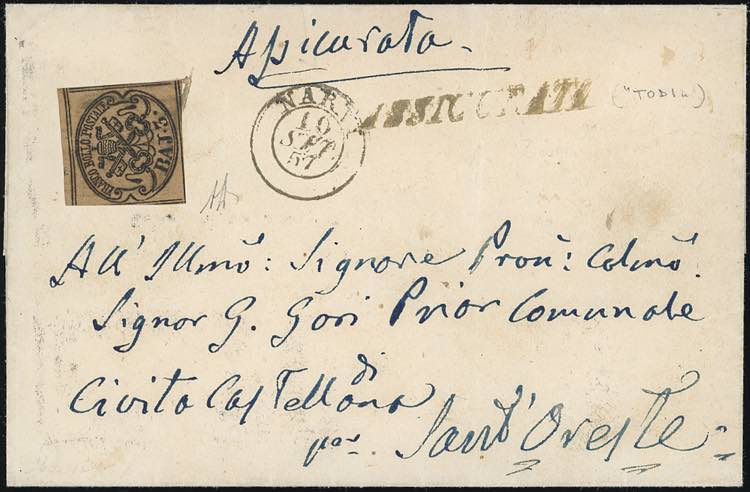 Assicurata
FRANCO BOLLO POSTALE
BAJ
NARNI
10
SET
57
ASSICURATA
("TODI")
All' Illmo: Signore Pron: Colmo.
Signor G. Gori Prior Comunale
di
Civita Castellana
per Sant' Oreste